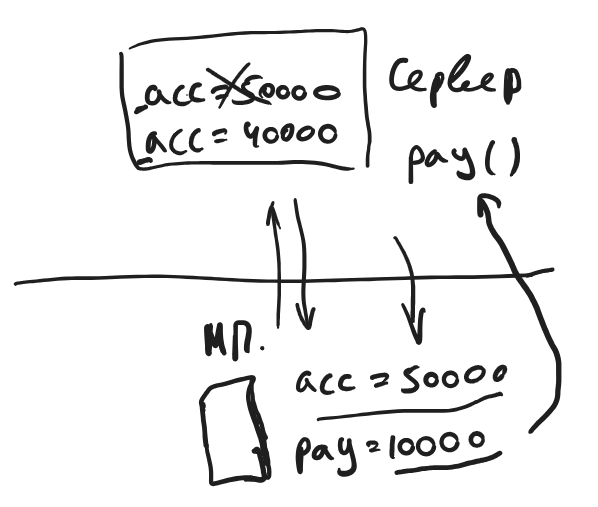 _acc=50000
_acc = 40000
Сервер
pay()
МП.
acc = 50000
pay = 10000